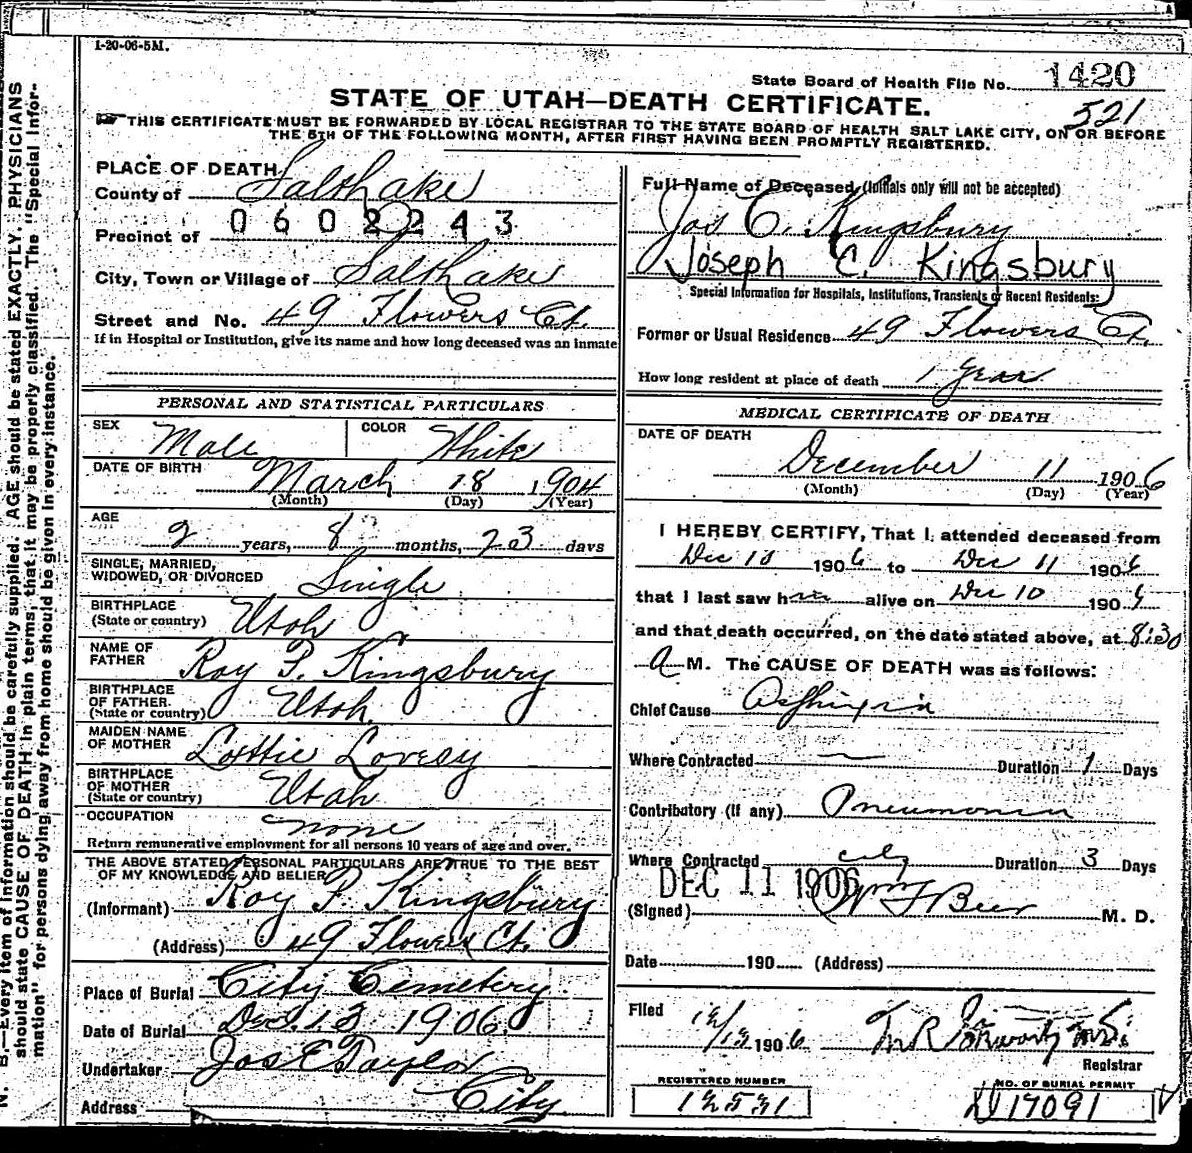 1-20-06-5M.
State Board of Health File No. 1420
STATE OF UTAH—DEATH CERTIFICATE.
521
THIS CERTIFICATE MUST BE FORWARDED BY LOCAL REGISTRAR TO THE STATE BOARD OF HEALTH SALT LAKE CITY, ON OR BEFORE
THE 5TH OF THE FOLLOWING MONTH, AFTER FIRST HAVING BEEN PROMPTLY REGISTERED.
PLACE OF DEATH
County of Salt Lake
0602243
Precinct of 2
City, Town or Village of Salt Lake
Street and No. 49 Flowers Ct.
If in Hospital or Institution, give its name and how long deceased was an inmate
Full Name of Deceased (Initials only will not be accepted)
Jos C. Kingsbury
Joseph C. Kingsbury
Special Information for Hospitals, Institutions, Transients or Recent Residents:
Former or Usual Residence 49 Flowers Ct.
How long resident at place of death 1 year
PERSONAL AND STATISTICAL PARTICULARS
SEX Male COLOR White
DATE OF BIRTH March 18 1904
(Month) (Day) (Year)
AGE
2 years, 8 months, 23 days
SINGLE, MARRIED,
WIDOWED, OR DIVORCED Single
BIRTHPLACE
(State or country) Utah
NAME OF
FATHER Roy P. Kingsbury
BIRTHPLACE
OF FATHER.
(State or country) Utah
MAIDEN NAME
OF MOTHER Lottie Lovesy
BIRTHPLACE
OF MOTHER
(State or country) Utah
OCCUPATION none
Return remunerative employment for all persons 10 years of age and over.
THE ABOVE STATED PERSONAL PARTICULARS ARE TRUE TO THE BEST
OF MY KNOWLEDGE AND BELIEF
(Informant) Roy P. Kingsbury
(Address) 49 Flowers Ct.
Place of Burial City Cemetery
Date of Burial Dec. 13 1906
Undertaker Jos E Taylor
Address City
MEDICAL CERTIFICATE OF DEATH
DATE OF DEATH
December 11 1906
(Month) (Day) (Year)
I HEREBY CERTIFY, That I attended deceased from
Dec 10 1906 to Dec 11 1906
that I last saw him alive on Dec 10 1906
and that death occurred, on the date stated above, at 8:30
A M. The CAUSE OF DEATH was as follows:
Chief Cause Asphixia
Where Contracted — Duration 1 Days
Contributory (if any) Pneumonia
Where Contracted city Duration 3 Days
DEC 11 1906
(Signed) Wm F Beer M. D.
Date 190 (Address)
Filed 12/13 1906
Registrar
REGISTERED NUMBER
12531
NO. OF BURIAL PERMIT
D17091
N. B.—Every item of information should be carefully supplied. AGE should be stated EXACTLY. PHYSICIANS
should state CAUSE OF DEATH in plain terms, that it may be properly classified. The "Special Infor-
mation" for persons dying away from home should be given in every instance.